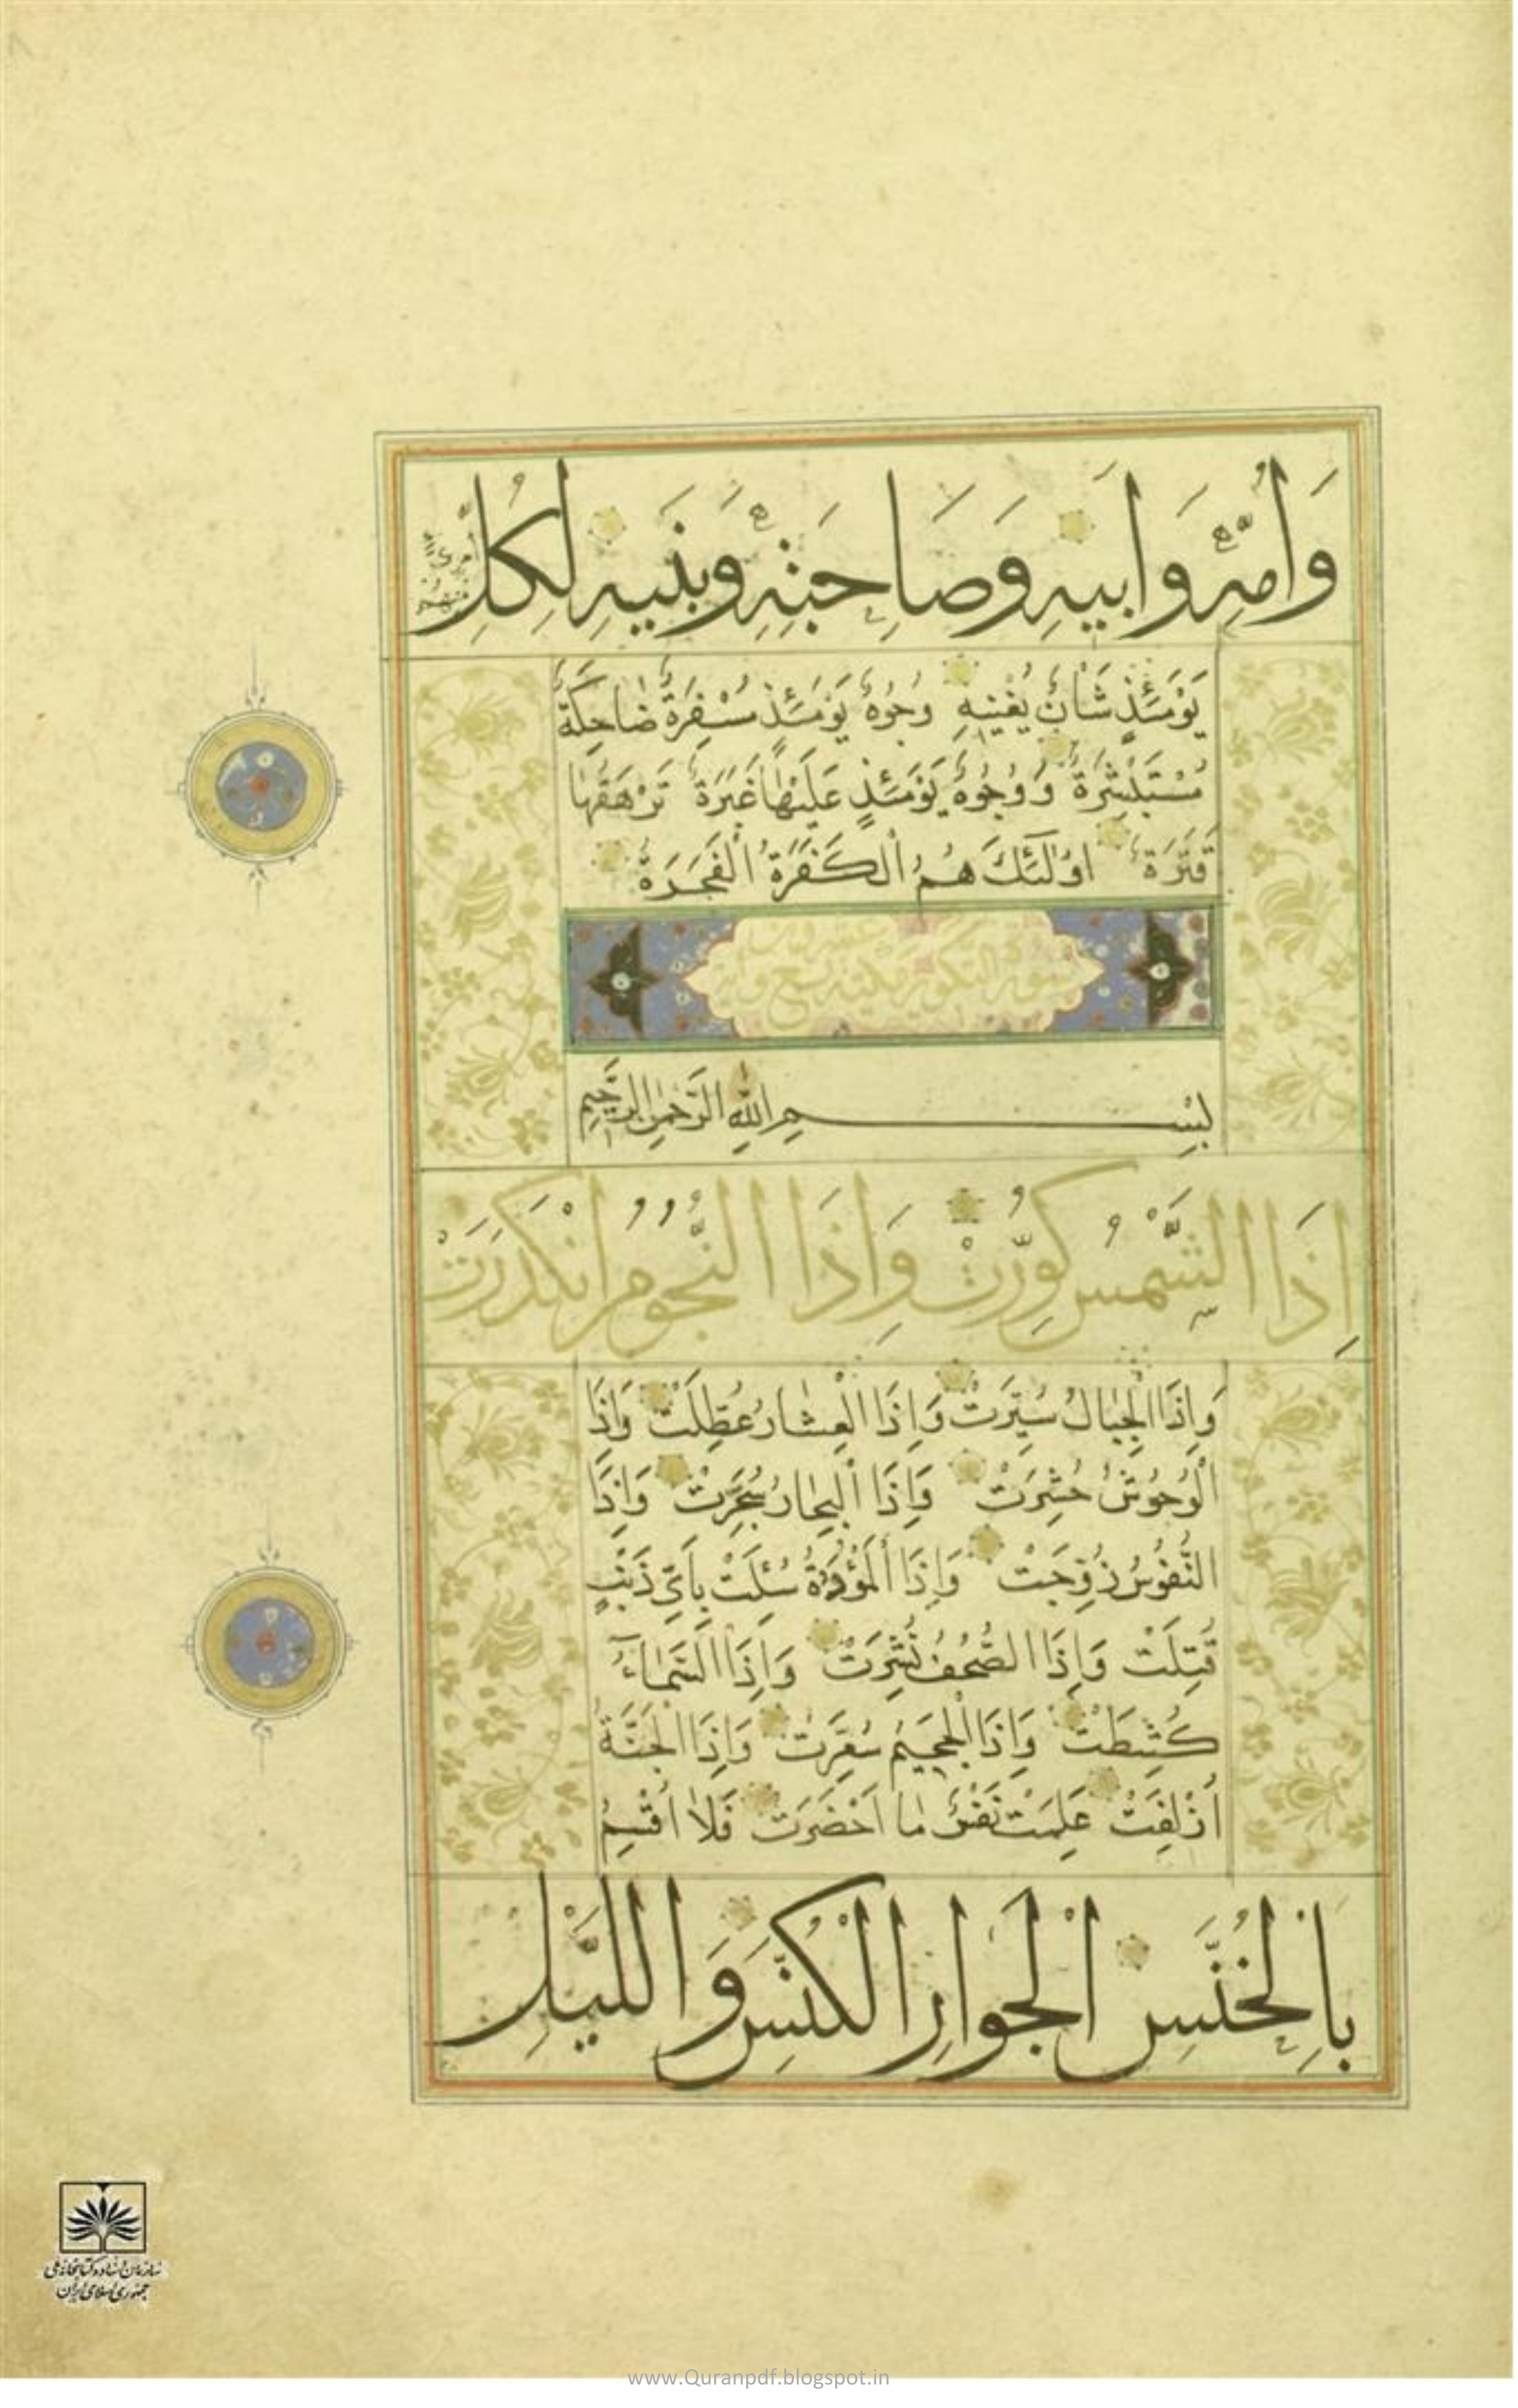 وَأُمِّهِ وَأَبِيهِ وَصَاحِبَتِهِ وَبَنِيهِ لِكُلِّ
امْرِئٍ مِنْهُمْ
يَوْمَئِذٍ شَأْنٌ يُغْنِيهِ وُجُوهٌ يَوْمَئِذٍ مُسْفِرَةٌ ضَاحِكَةٌ
مُسْتَبْشِرَةٌ وَوُجُوهٌ يَوْمَئِذٍ عَلَيْهَا غَبَرَةٌ تَرْهَقُهَا
قَتَرَةٌ اُولٰئِكَ هُمُ الْكَفَرَةُ الْفَجَرَةُ
سورة التكوير مكية تسع و
عشرون آية
بِسْمِ اللهِ الرَّحْمٰنِ الرَّحِيمِ
إِذَا الشَّمْسُ كُوِّرَتْ وَإِذَا النُّجُومُ انْكَدَرَتْ
وَإِذَا الْجِبَالُ سُيِّرَتْ وَإِذَا الْعِشَارُ عُطِّلَتْ وَإِذَا
الْوُحُوشُ حُشِرَتْ وَإِذَا الْبِحَارُ سُجِّرَتْ وَإِذَا
النُّفُوسُ زُوِّجَتْ وَإِذَا الْمَوْؤُدَةُ سُئِلَتْ بِأَيِّ ذَنْبٍ
قُتِلَتْ وَإِذَا الصُّحُفُ نُشِرَتْ وَإِذَا السَّمَاءُ
كُشِطَتْ وَإِذَا الْجَحِيمُ سُعِّرَتْ وَإِذَا الْجَنَّةُ
أُزْلِفَتْ عَلِمَتْ نَفْسٌ مَا أَحْضَرَتْ فَلَا أُقْسِمُ
بِالْخُنَّسِ الْجَوَارِ الْكُنَّسِ وَاللَّيْلِ
سازمان اسناد و کتابخانه ملی
جمهوری اسلامی ایران
www.Quranpdf.blogspot.in